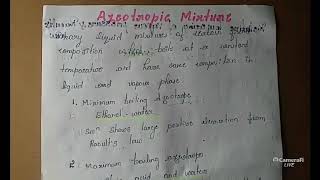 Azeotropic Mixture
Binary liquid mixtures of certain
composition which boils at a constant
temperature and have same composition in
liquid and vapour phase
1. Minimum boiling azeotrope
Ethanol-water
Soln shows large positive deviation from
Raoult's law
2. Maximum boiling azeotrope
acid and water
CameraFi
LIVE